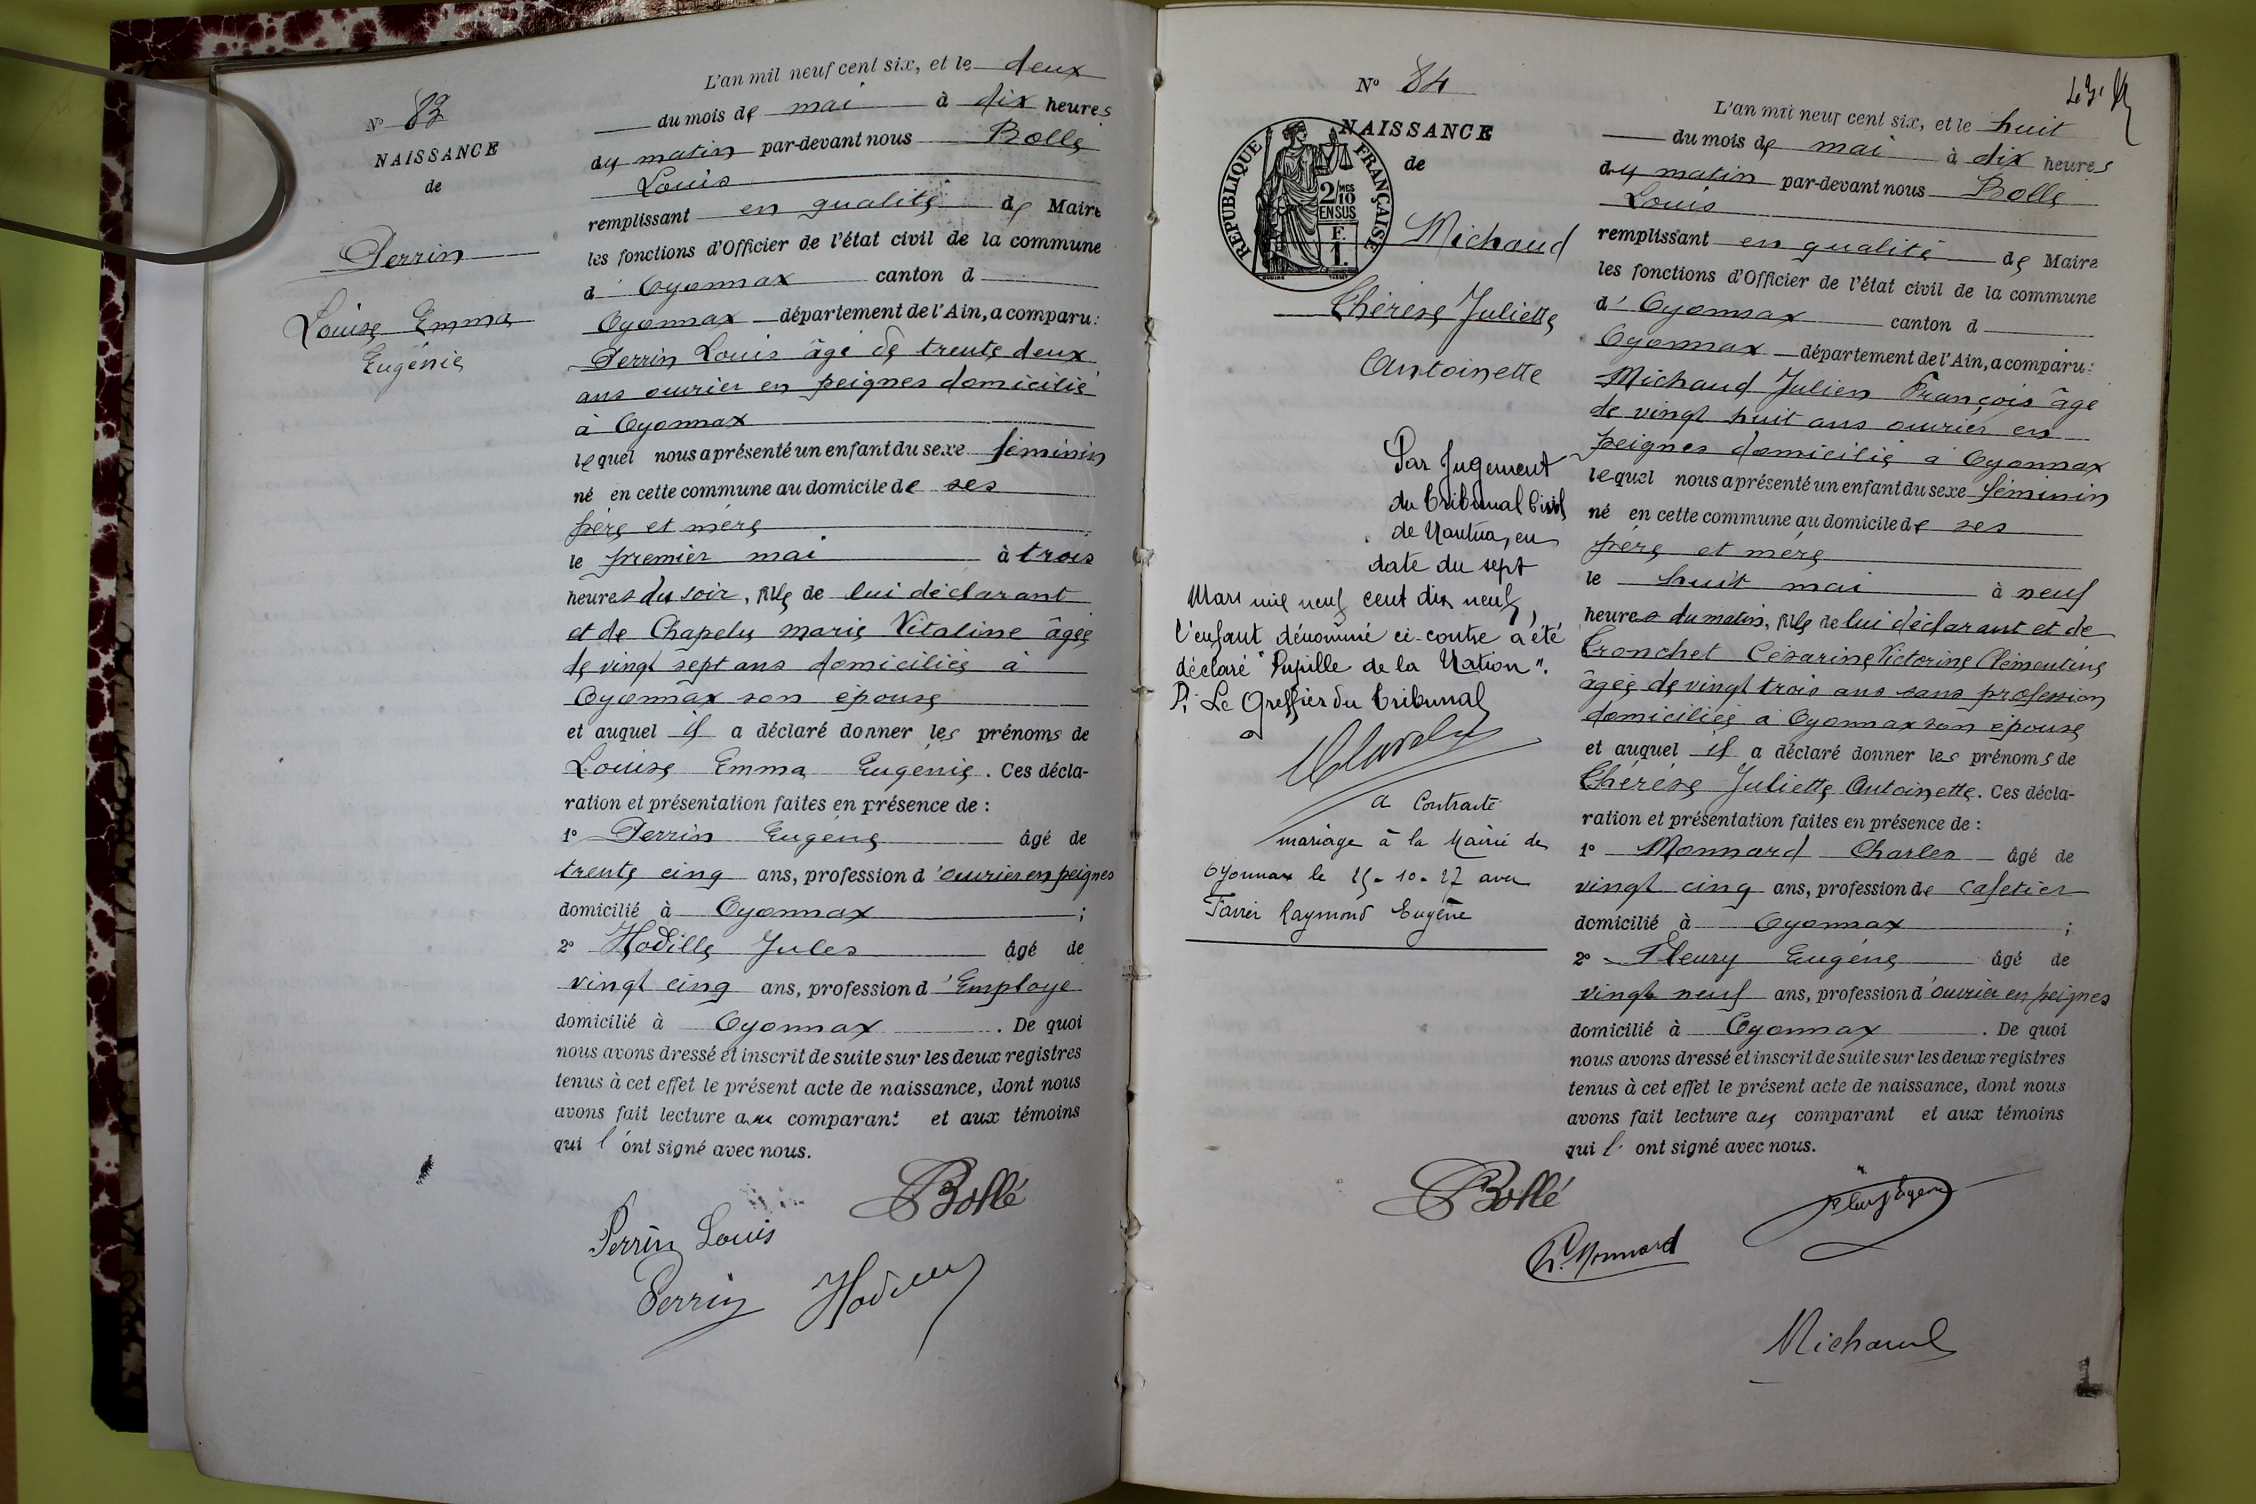 N° 83
NAISSANCE
de
Perrin
Louise Emma
Eugénie
L'an mil neuf cent six, et le deux
du mois de mai à dix heures
du matin par-devant nous Bollé
Louis
remplissant en qualité de Maire
les fonctions d'Officier de l'état civil de la commune
d'Oyonnax canton d
Oyonnax département de l'Ain, a comparu:
Perrin Louis âgé de trente deux
ans ouvrier en peignes domicilié
à Oyonnax
lequel nous a présenté un enfant du sexe féminin
né en cette commune au domicile de ses
père et mère
le premier mai à trois
heures du soir, fille de lui déclarant
et de Chapelu Marie Vitaline âgée
de vingt sept ans domiciliée à
Oyonnax son épouse
et auquel il a déclaré donner les prénoms de
Louise Emma Eugénie. Ces décla-
ration et présentation faites en présence de:
1° Perrin Eugène âgé de
trente cinq ans, profession d'ouvrier en peignes
domicilié à Oyonnax;
2° Hodille Jules âgé de
vingt cinq ans, profession d'Employé
domicilié à Oyonnax. De quoi
nous avons dressé et inscrit de suite sur les deux registres
tenus à cet effet le présent acte de naissance, dont nous
avons fait lecture au comparant et aux témoins
qui l'ont signé avec nous.
Bollé
Perrin Louis
Perrin Hodille
N° 84
NAISSANCE
de
RÉPUBLIQUE FRANÇAISE
2/10 MES
EN SUS
F.
1.
Michaud
Thérèse Juliette
Antoinette
Par Jugement
du Tribunal Civil
de Nantua, en
date du sept
Mars mil neuf cent dix neuf,
l'enfant dénommé ci-contre a été
déclaré "Pupille de la Nation".
P. Le Greffier du Tribunal
a Contracté
mariage à la Mairie de
Oyonnax le 25-10-27 avec
Raymond Eugène
L'an mil neuf cent six, et le huit
du mois de mai à dix heures
du matin par-devant nous Bollé
Louis
remplissant en qualité de Maire
les fonctions d'Officier de l'état civil de la commune
d'Oyonnax canton d
Oyonnax département de l'Ain, a comparu:
Michaud Julien François âgé
de vingt huit ans ouvrier en
peignes domicilié à Oyonnax
lequel nous a présenté un enfant du sexe féminin
né en cette commune au domicile de ses
père et mère
le huit mai à neuf
heures du matin, fille de lui déclarant et de
Tronchet Césarine Victorine Clémentine
âgée de vingt trois ans sans profession
domiciliée à Oyonnax son épouse
et auquel il a déclaré donner les prénoms de
Thérèse Juliette Antoinette. Ces décla-
ration et présentation faites en présence de:
1° Monnard Charles âgé de
vingt cinq ans, profession de cafetier
domicilié à Oyonnax;
2° Fleury Eugène âgé de
vingt neuf ans, profession d'ouvrier en peignes
domicilié à Oyonnax. De quoi
nous avons dressé et inscrit de suite sur les deux registres
tenus à cet effet le présent acte de naissance, dont nous
avons fait lecture au comparant et aux témoins
qui l'ont signé avec nous.
Bollé
Ch. Monnard
Michaud